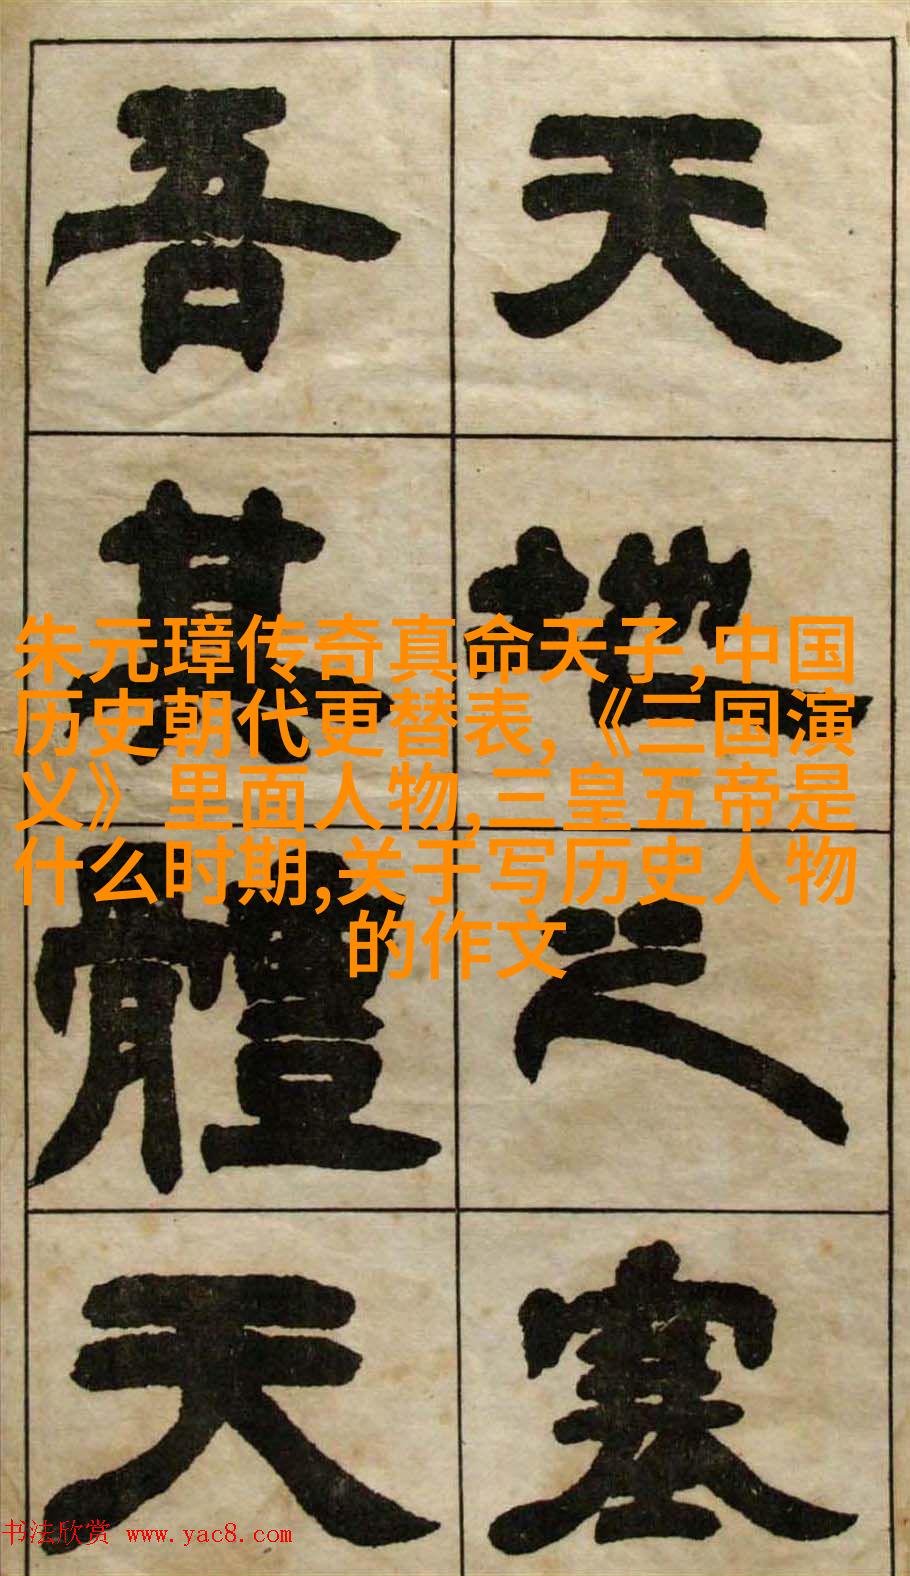 天地之塞
吾其體天
朱元璋传奇真命天子,中国
历史朝代更替表,《三国演
义》里面人物,三皇五帝是
什么时期,关于写历史人物
的作文
书法欣赏 www.yac8.com